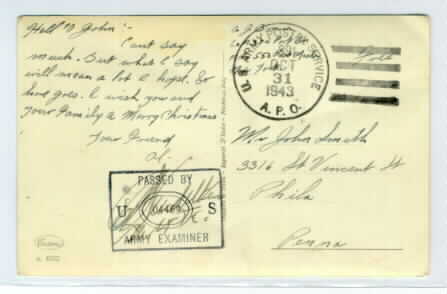 Hello John:-
Can't say
much. But what I say
will mean a lot I hope. So
here goes. I wish you and
your Family a Merry Christmas
Your Friend
Al.
PASSED BY
U S
ARMY EXAMINER
U.S. ARMY POSTAL SERVICE
OCT
31
1943
A.P.O.
Free
Mr John Smith
3316 St Vincent St
Phila
Penna